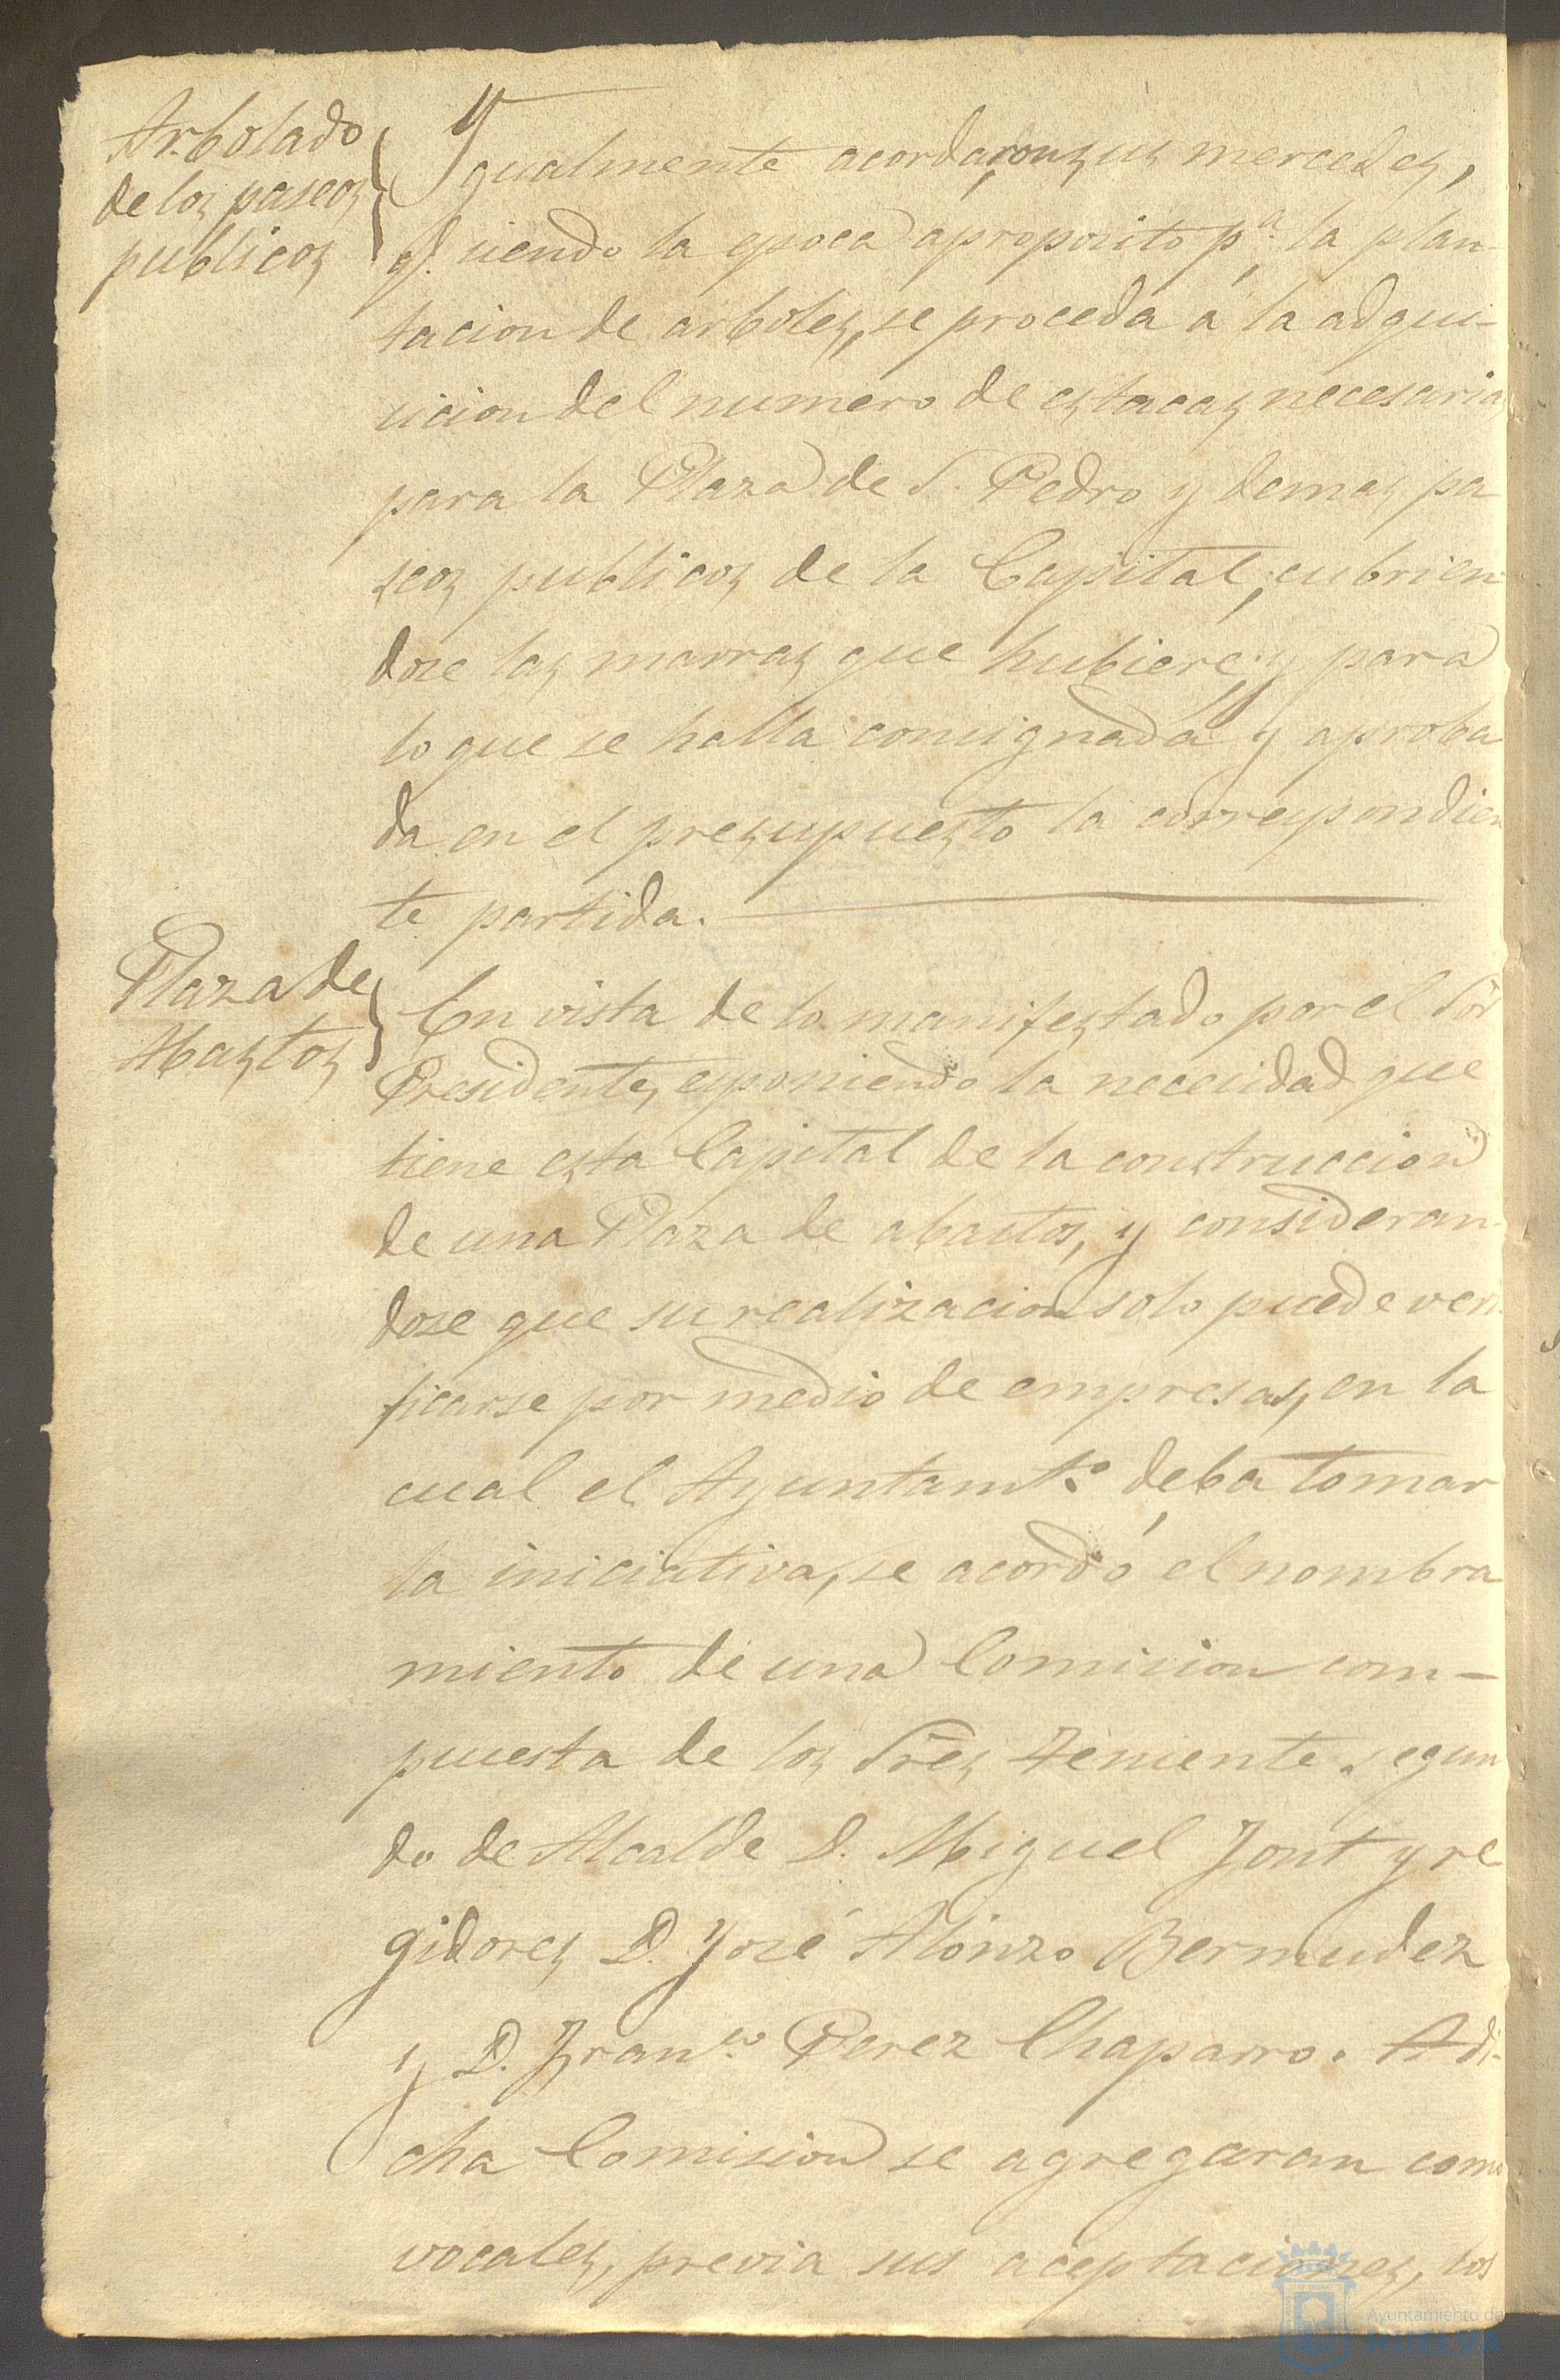 Arbolado
de los paseos
publicos
Ygualmente acordaron sus mercedes,
q.e siendo la epoca aproposito p.a la plan-
tacion de arboles, se proceda á la adqui-
sicion del numero de estacas necesarias
para la Plaza de S. Pedro y demas pa-
seos publicos de la Capital, cubrien-
dose las marras que hubiere, y para
lo que se halla consignada y aproba
da en el presupuesto la correspondien
te partida.
Plaza de
Abastos
En vista de lo manifestado por el Sor
Presidente, esponiendo la necesidad que
tiene esta Capital de la construccion
de una Plaza de abastos, y consideran-
dose que su realizacion solo puede veri
ficarse por medio de empresas, en la
cual el Ayuntamt.o deba tomar
la iniciativa, se acordó el nombra
miento de una Comision com-
puesta de los Sres Teniente segun
do de Alcalde D. Miguel Jont y re
gidores D. José Alonzo Bermudez
y D. Fran.co Perez Chaparro. A di-
cha Comision se agregaran como
vocales, previa sus aceptaciones, los
Ayuntamiento de
HUELVA